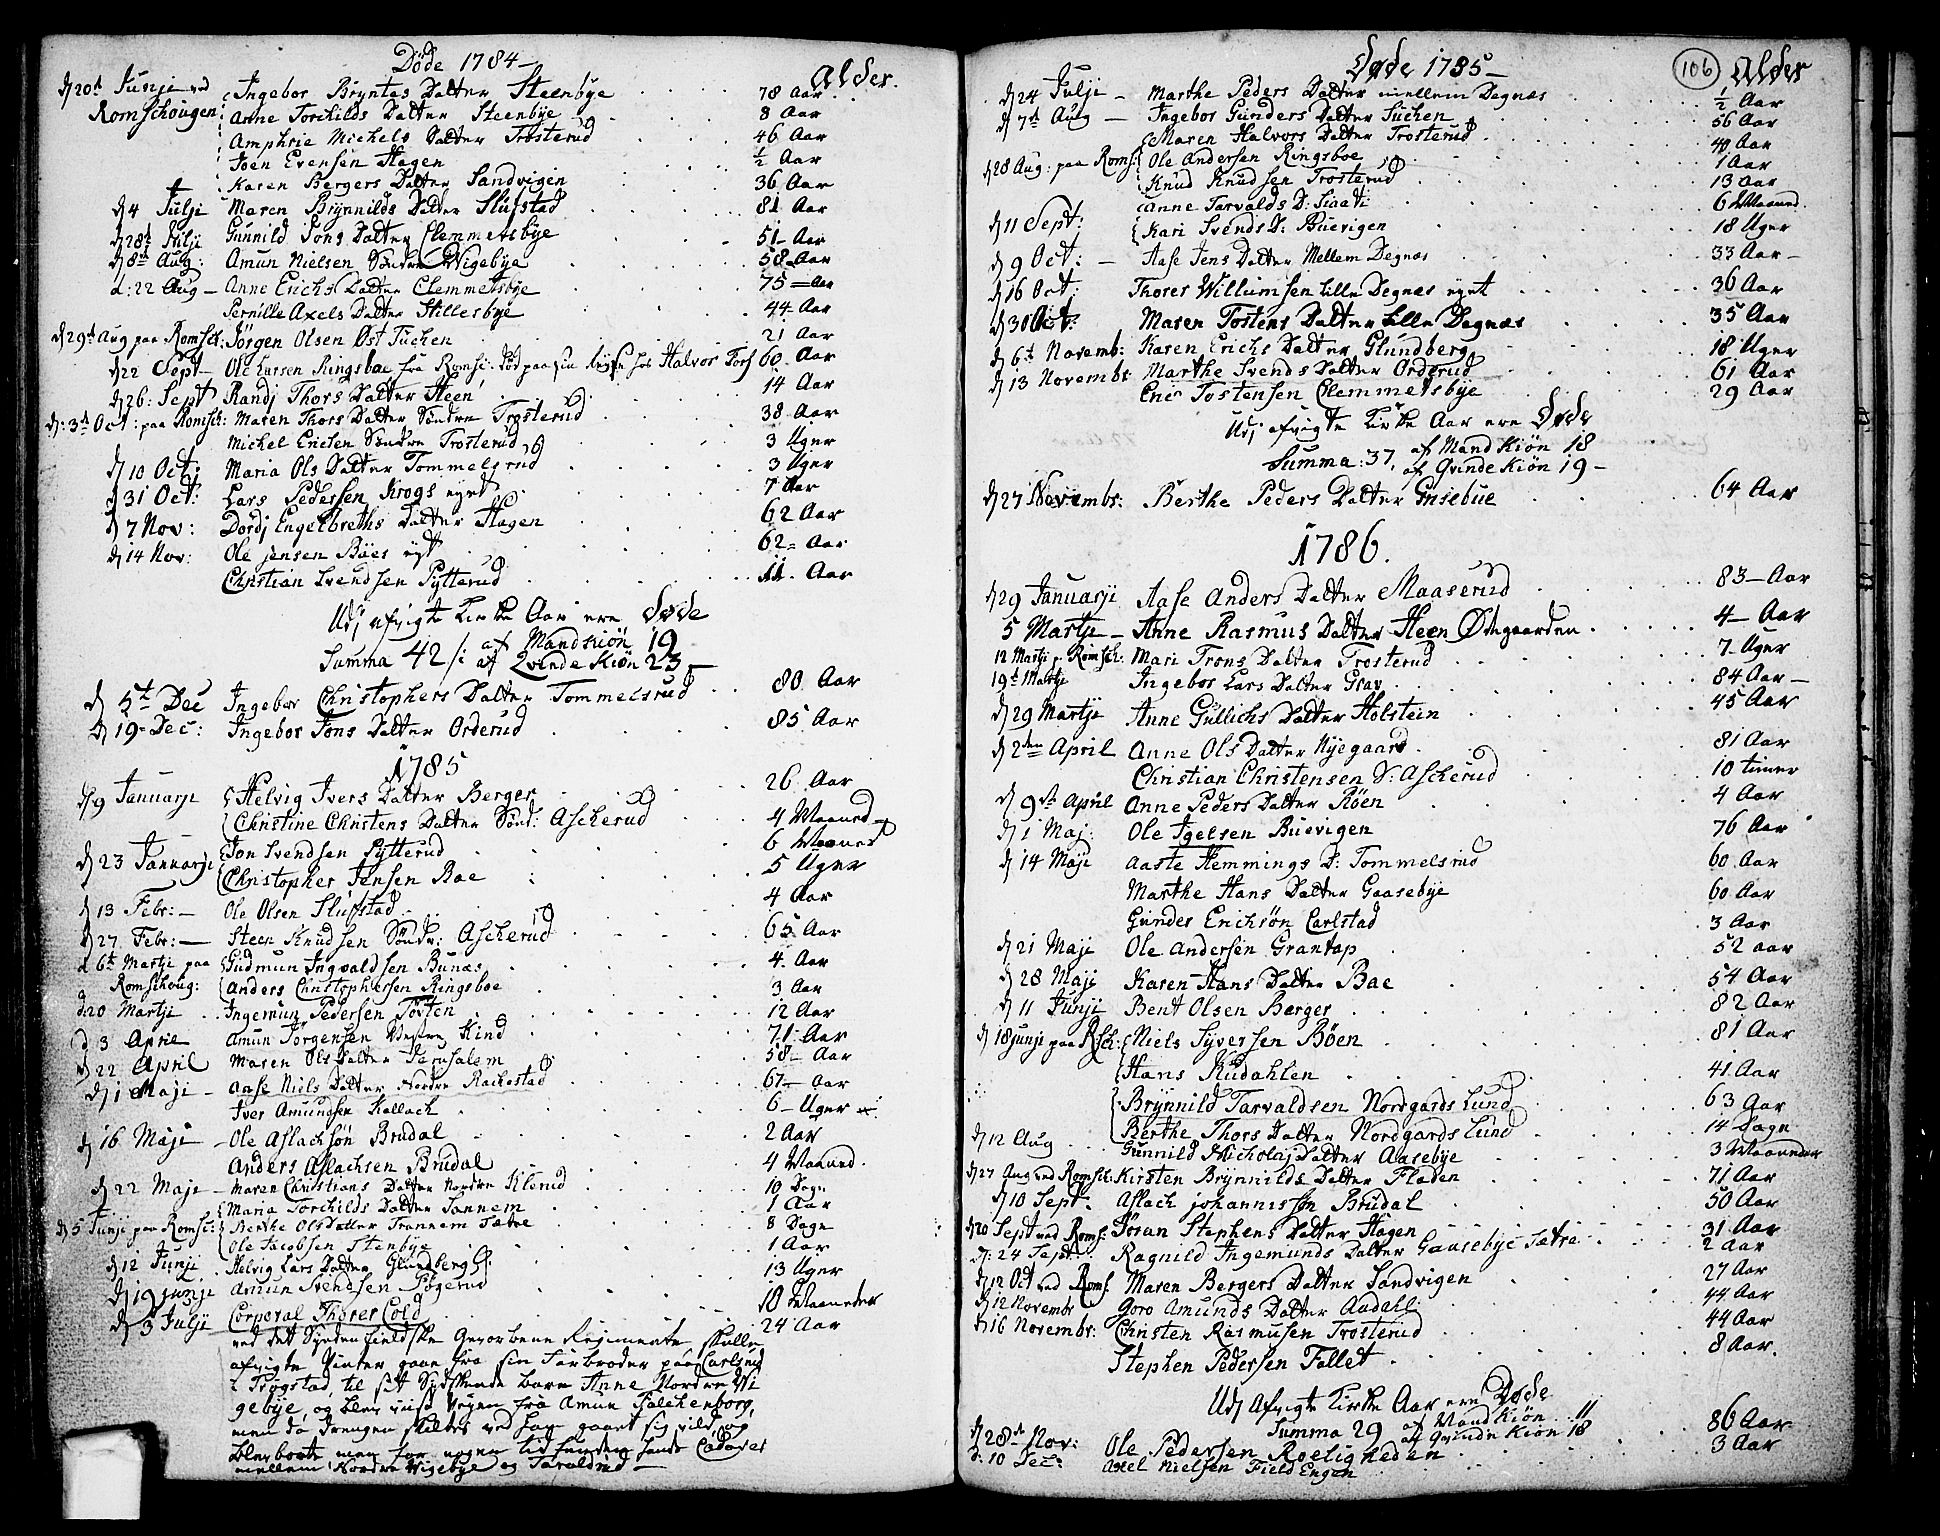 Døde 1784 - Alder.
d 20de Junji ved Ingebor Bryntes Datter Steenbye 78 Aar
Romschougen: Anne Torchilds Datter Steenbye 8 Aar
Amphrie Michels Datter Trosterud 46 Aar
Joen Evensen Hagen ½ Aar
Karen Bergers Datter Sandvigen 36 Aar
d 4 Julji Maren Brynnilds Datter Slufstad 81 Aar
d 28d Julji Gunnild Jons Datter Clemmetsbye 51 - Aar
d 8de Aug: Amun Nielsen Søndre Wigebye 58 - Aar
d: 22 Aug - Anne Erichs Datter Clemmetsbye 75 - Aar
Pernille Axels Datter Stillesbye 44 - Aar
d 29d Aug paa Romsch: Jörgen Olsen Øst Tuchen 21 Aar
d 22 Sept - Ole Larsen Ringsboe fra Romsc: død paa sin rejse hos Halvor Fors 60 Aar
d 26: Sept Randj Thors Datter Heen 14 Aar
d: 3d Oct: paa Romsch: Maren Thors Datter Søndre Trosterud 38 Aar
Michel Ericsen Søndre Trosterud 3 Uger
d 10 Oct: Maria Ols Datter Tommelsrud 3 Uger
d 31 Oct: Lars Pedersen Krogs eyet 7 Aar
d 7 Nov: Dordj Engelbreths Datter Hagen 62 Aar
d 14 Nov: Ole Jensen Böes eyt 62 - Aar
Christian Svendsen Sytterud 11 Aar
Udj afvigte Kirke Aar ere Døde
Summa 42 /: af Mandkiön 19
af Qvinde Kiön 23 -
d 5te Dec Ingebor Christophers Datter Tommelsrud 80 Aar
d 19 - Dec: Ingebor Jons Datter Orderud 85 Aar
1785
d 9 Januarji Helvig Ivers Datter Berger 26 Aar
Christine Christens Datter Sønd: Ascherud 4 Maaned
d 23 Januarji Jon Svendsen Sytterud 6 Maaned
Christopher Jensen Bae 5 Uger
d 13 Febr: - Ole Olsen Slufstad 4 Aar
d 27 Febr: - Steen Knudsen Søndr: Ascherud 65 Aar
d 6te Martji paa Gudmun Ingvaldsen Bunæs 4 Aar
Romschoug: Anders Christophersen Ringsboe 3 Aar
d: 20 Martji Ingemun Pedersen Törten 12 Aar
d 3 April Amun Jörgensen Vestre Kind 71 - Aar
d 22 April Maren Ols Datter Jerusalem 58 - Aar
d 1 Maji - Aase Niels Datter Nordre Rachestad 67 - Aar
Iver Amundsen Kallach 6 - Uger
d 16 Maji - Ole Aslachsön Brudal 2 Aar
Anders Aslachsen Brudal 4 Maaned.
d 22 Maji - Maren Christians Datter Nordre Klerud 10 Dage
Maria Torchilds Datter Sannem 1 Aar
d 5 Junji paa Romsc: Berthe Ols Datter Trannem Sætre 8 Dage
Ole Jacobsen Stenbye 1 Aar
d 12 Junji Helvig Lars Datter Glundberg 13 Uger
d 19 junji Amun Svendsen Pögerud 18 Maaneder
d 3 Julji Corporal Thorer Cold 24 Aar
ved det Syndenfieldske Geworbene Regimente, skulle
afvigte Vinter gaae fra sin Farbroder paa Carlsrud
i Trøgstad, til sit Sydskende barn Anne Nordre Wi
gebye, og blev viist Veyen fra Amun Falchenborg,
men da drengen skiltes ved ham gaaet sig vild, og
blev borte men for nogen tid funden hands Cadaver
mellem Nordre Wigebye og Taraldrud -
Døde 1785 - 106 Alder
d 24 Julji - Marthe Peders Datter mellem Degnæs ½ Aar
d 7de Aug - Ingebor Gunders Datter Tuchen 56 Aar
Maren Halvors Datter Trosterud 40 Aar
d 28 Aug: paa Roms: Ole Andersen Ringsboe 1 Aar
Knud Knudsen Trosterud 13 Aar
Anne Tarvalds D: Siaati 6 Maaned.
d 11 Sept: Kari Svends D: Buerigen 18 Uger
d 9 Oct: - Aase Jens Datter Mellem Degnæs 33 Aar -
d 16 Oct: Thorer Willumsen Lille Degnæs eyet 36 Aar
d 30 Oct: Maren Tostens Datter Lille Degnæs 35 Aar
d 6te Novemb: Karen Erichs Datter Glundberg 18 Uger
d 13 Novembr Marthe Svends Datter Orderud 61 Aar
Eric Tostensen Clemmetsbye 29 Aar
Udj afvigte Kirke Aar ere Døde
Summa: 37, af Mand Kiön 18
af Qvinde Kiön 19 -
d 27 Novembr: Berthe Peders Datter Grisebue 64 Aar
1786.
d 29 Januarji Aase Anders Datter Maaserud 83 - Aar
5 Martji - Anne Rasmus Datter Heen Ødegaarden 4 - Aar
12 Martji p. Romsch: Mari Trons Datter Trosterud 7 - Uger
19d Martji Ingebor Lars Datter Grav 84 Aar -
d 29 Martji Anne Gullichs Datter Holstein 45 Aar
d 2den April Anne Ols Datter Nyegaard 81 Aar
Christian Christensen S: Ascherud 10 timer
d 9de April Anne Peders Datter Röen 4 Aar
d 1 Maj: Ole Igelsen Buevigen 76 Aar
d 14 Maji Aaste Hemmings D: Tommelsrud 60 Aar
Marthe Hans Datter Gaasebye 60 Aar
Gunder Erichsön Carlstad 3 Aar
d 21 Maji Ole Andersen Grantop 52 aar
d 28 Maji Karen Hans Datter Bae 54 Aar
d 11 Junji Bent Olsen Berger 82 Aar
d 18 junji paa Rsch: Niels Syversen Böen 81 Aar
Hans Kudahlen 41 Aar
Brynnild Tarvaldsen Nordgards Lund 63 Aar
Berthe Thors Datter Nordgards Lund 14 Dage
d 12 Aug Gunnild Nicholaj Datter Aasebye 3 Maaneder
d 27 Aug ved Romsch: Kirsten Brynnilds Datter Fladen 71 Aar
d 10 Sept. Aslach johannissen Brudal 50 Aar
d 20 Sept ved Roms: Joran Stephens Datter Hagen 31 Aar
d: 24 Sept: Ragnild Ingemunds Datter Gaasebye Sætre 2 Aar
d 12 Oct ved Roms. Maren Bergers Datter Sandvigen 27 Aar
d 12 Novembr Goro Amunds Datter Aadahl 44 Aar
d 16 Novembr: Christen Rasmusen Trosterud 44 Aar
Stephen Pedersen Fallet 8 Aar.
Udj Afvigte Kirke Aar ere Døde
Summa 29 af Mand Kiön 11
af Qvinde Kiön 18
d 28de Nov: Ole Pedersen Roeligheden 86 Aar
d: 10 Dec: Axel Nielsen Field Engen 3 Aar